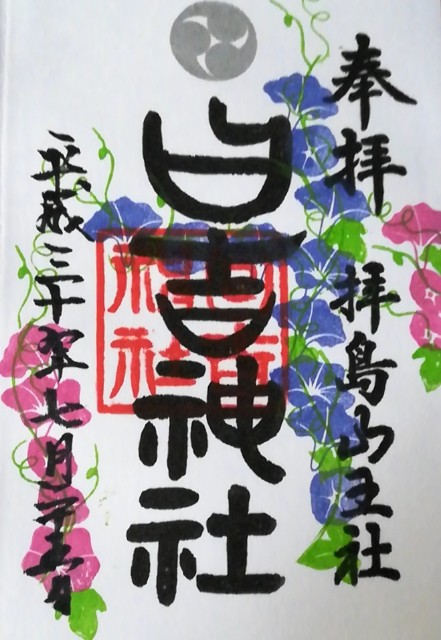 奉拝　拝島山王社
日吉神社
日吉
神社
平成二十九年七月